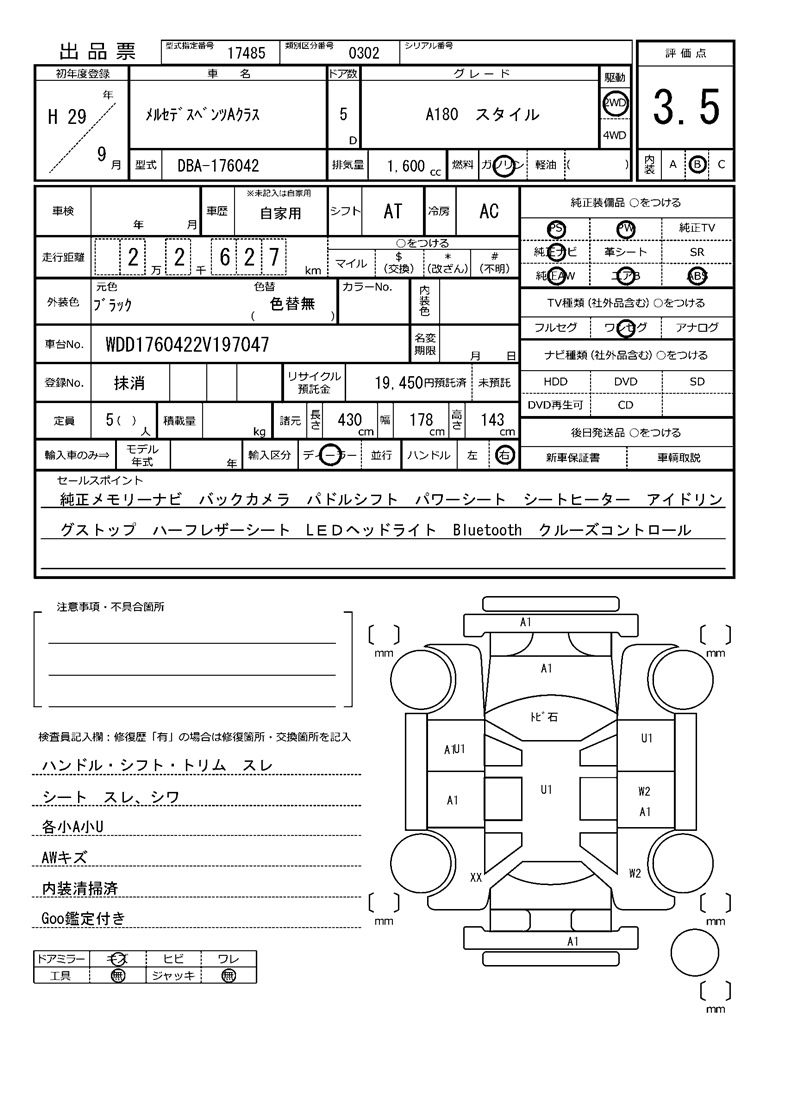 出品票 型式指定番号 17485 類別区分番号 0302 シリアル番号 評価点
初年度登録 車名 ドア数 グレード 駆動
H 29 年 9 月 メルセデスベンツAクラス 5 D A180 スタイル 2WD 4WD 3.5
型式 DBA-176042 排気量 1,600 cc 燃料 ガソリン 軽油 ( ) 内装 A B C
車検 年 月 車歴 ※未記入は自家用 自家用 シフト AT 冷房 AC 純正装備品 ○をつける
PS PW 純正TV
走行距離 2 万 2 千 6 2 7 km ○をつける 純正ナビ 革シート SR
マイル $ (交換) * (改ざん) # (不明) 純正AW エアB ABS
外装色 元色 ブラック 色替 ( 色替無 ) カラーNo. 内装色 TV種類 (社外品含む) ○をつける
フルセグ ワンセグ アナログ
車台No. WDD1760422V197047 名変期限 月 日 ナビ種類 (社外品含む) ○をつける
登録No. 抹消 リサイクル預託金 19,450円預託済 未預託 HDD DVD SD
DVD再生可 CD
定員 5( ) 人 積載量 kg 諸元 長さ 430 cm 幅 178 cm 高さ 143 cm 後日発送品 ○をつける
輸入車のみ⇒ モデル年式 年 輸入区分 ディーラー 並行 ハンドル 左 右 新車保証書 車輌取説
セールスポイント
純正メモリーナビ バックカメラ パドルシフト パワーシート シートヒーター アイドリン
グストップ ハーフレザーシート LEDヘッドライト Bluetooth クルーズコントロール
注意事項・不具合箇所
検査員記入欄:修復歴「有」の場合は修復箇所・交換箇所を記入
ハンドル・シフト・トリム スレ
シート スレ、シワ
各小A小U
AWキズ
内装清掃済
Goo鑑定付き
ドアミラー キズ ヒビ ワレ
工具 無 ジャッキ 無
A1
mm mm
A1
トビ石
A1U1 U1
U1
A1 W2
A1
XX W2
mm mm
A1
mm